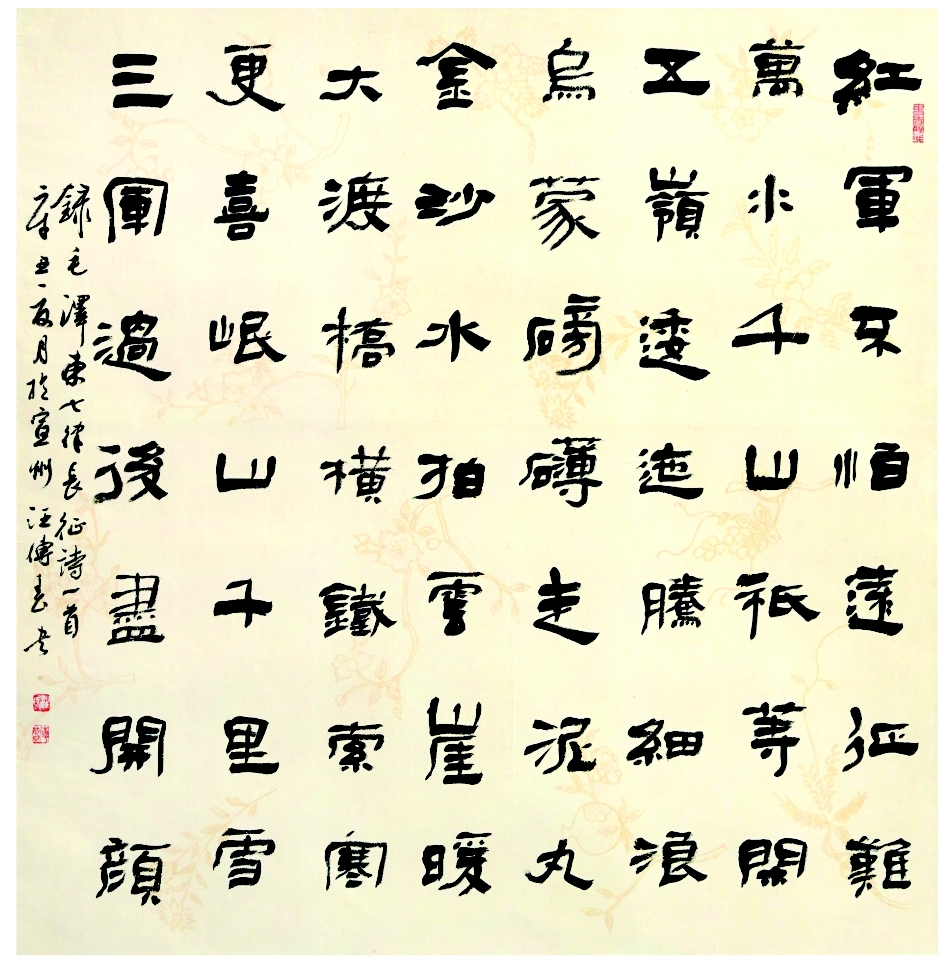 紅軍不怕遠征難
萬水千山祇等閑
五嶺逶迤騰細浪
烏蒙磅礴走泥丸
金沙水拍雲崖暖
大渡橋橫鐵索寒
更喜岷山千里雪
三軍過後盡開顏
録毛澤東七律長征詩一首
辛丑夏月於宣州 汪傳春書